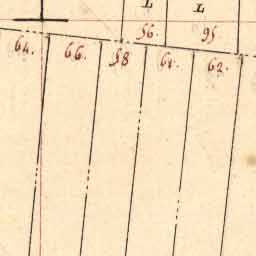 L L
56. 95
64. 66. 58 61. 62.